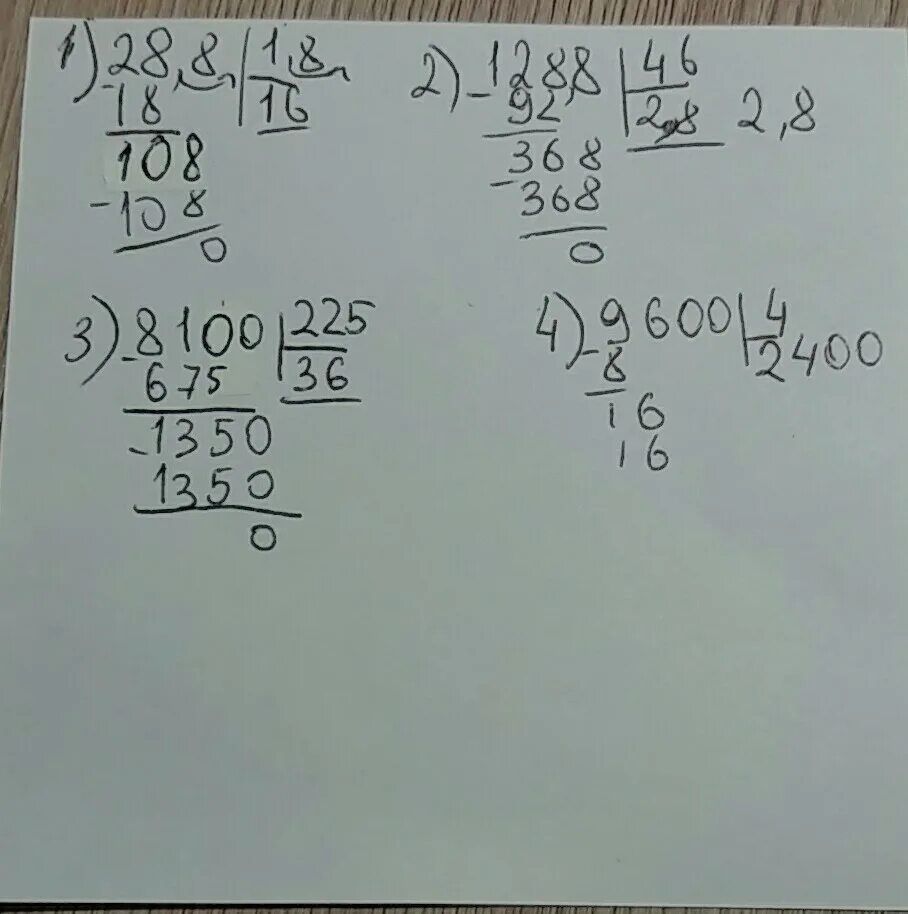 1) 28,8 | 1,8
-18 | 16
108
-108
0
2) -128,8 | 46
92 | 2,8 2,8
368
-368
0
3) -8100 | 225
675 | 36
-1350
1350
0
4) -9600 | 4
8 | 2400
16
16